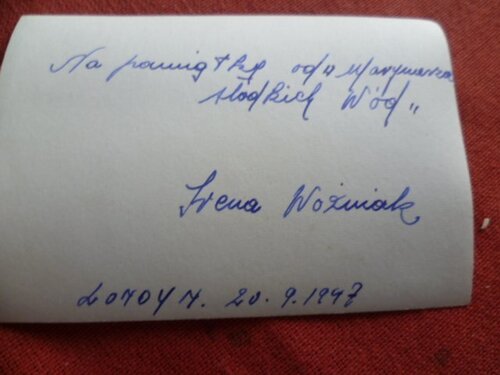 Na pamiątkę od „Marynarza
słodkich Wód"
Irena Woźniak
20.9.1997